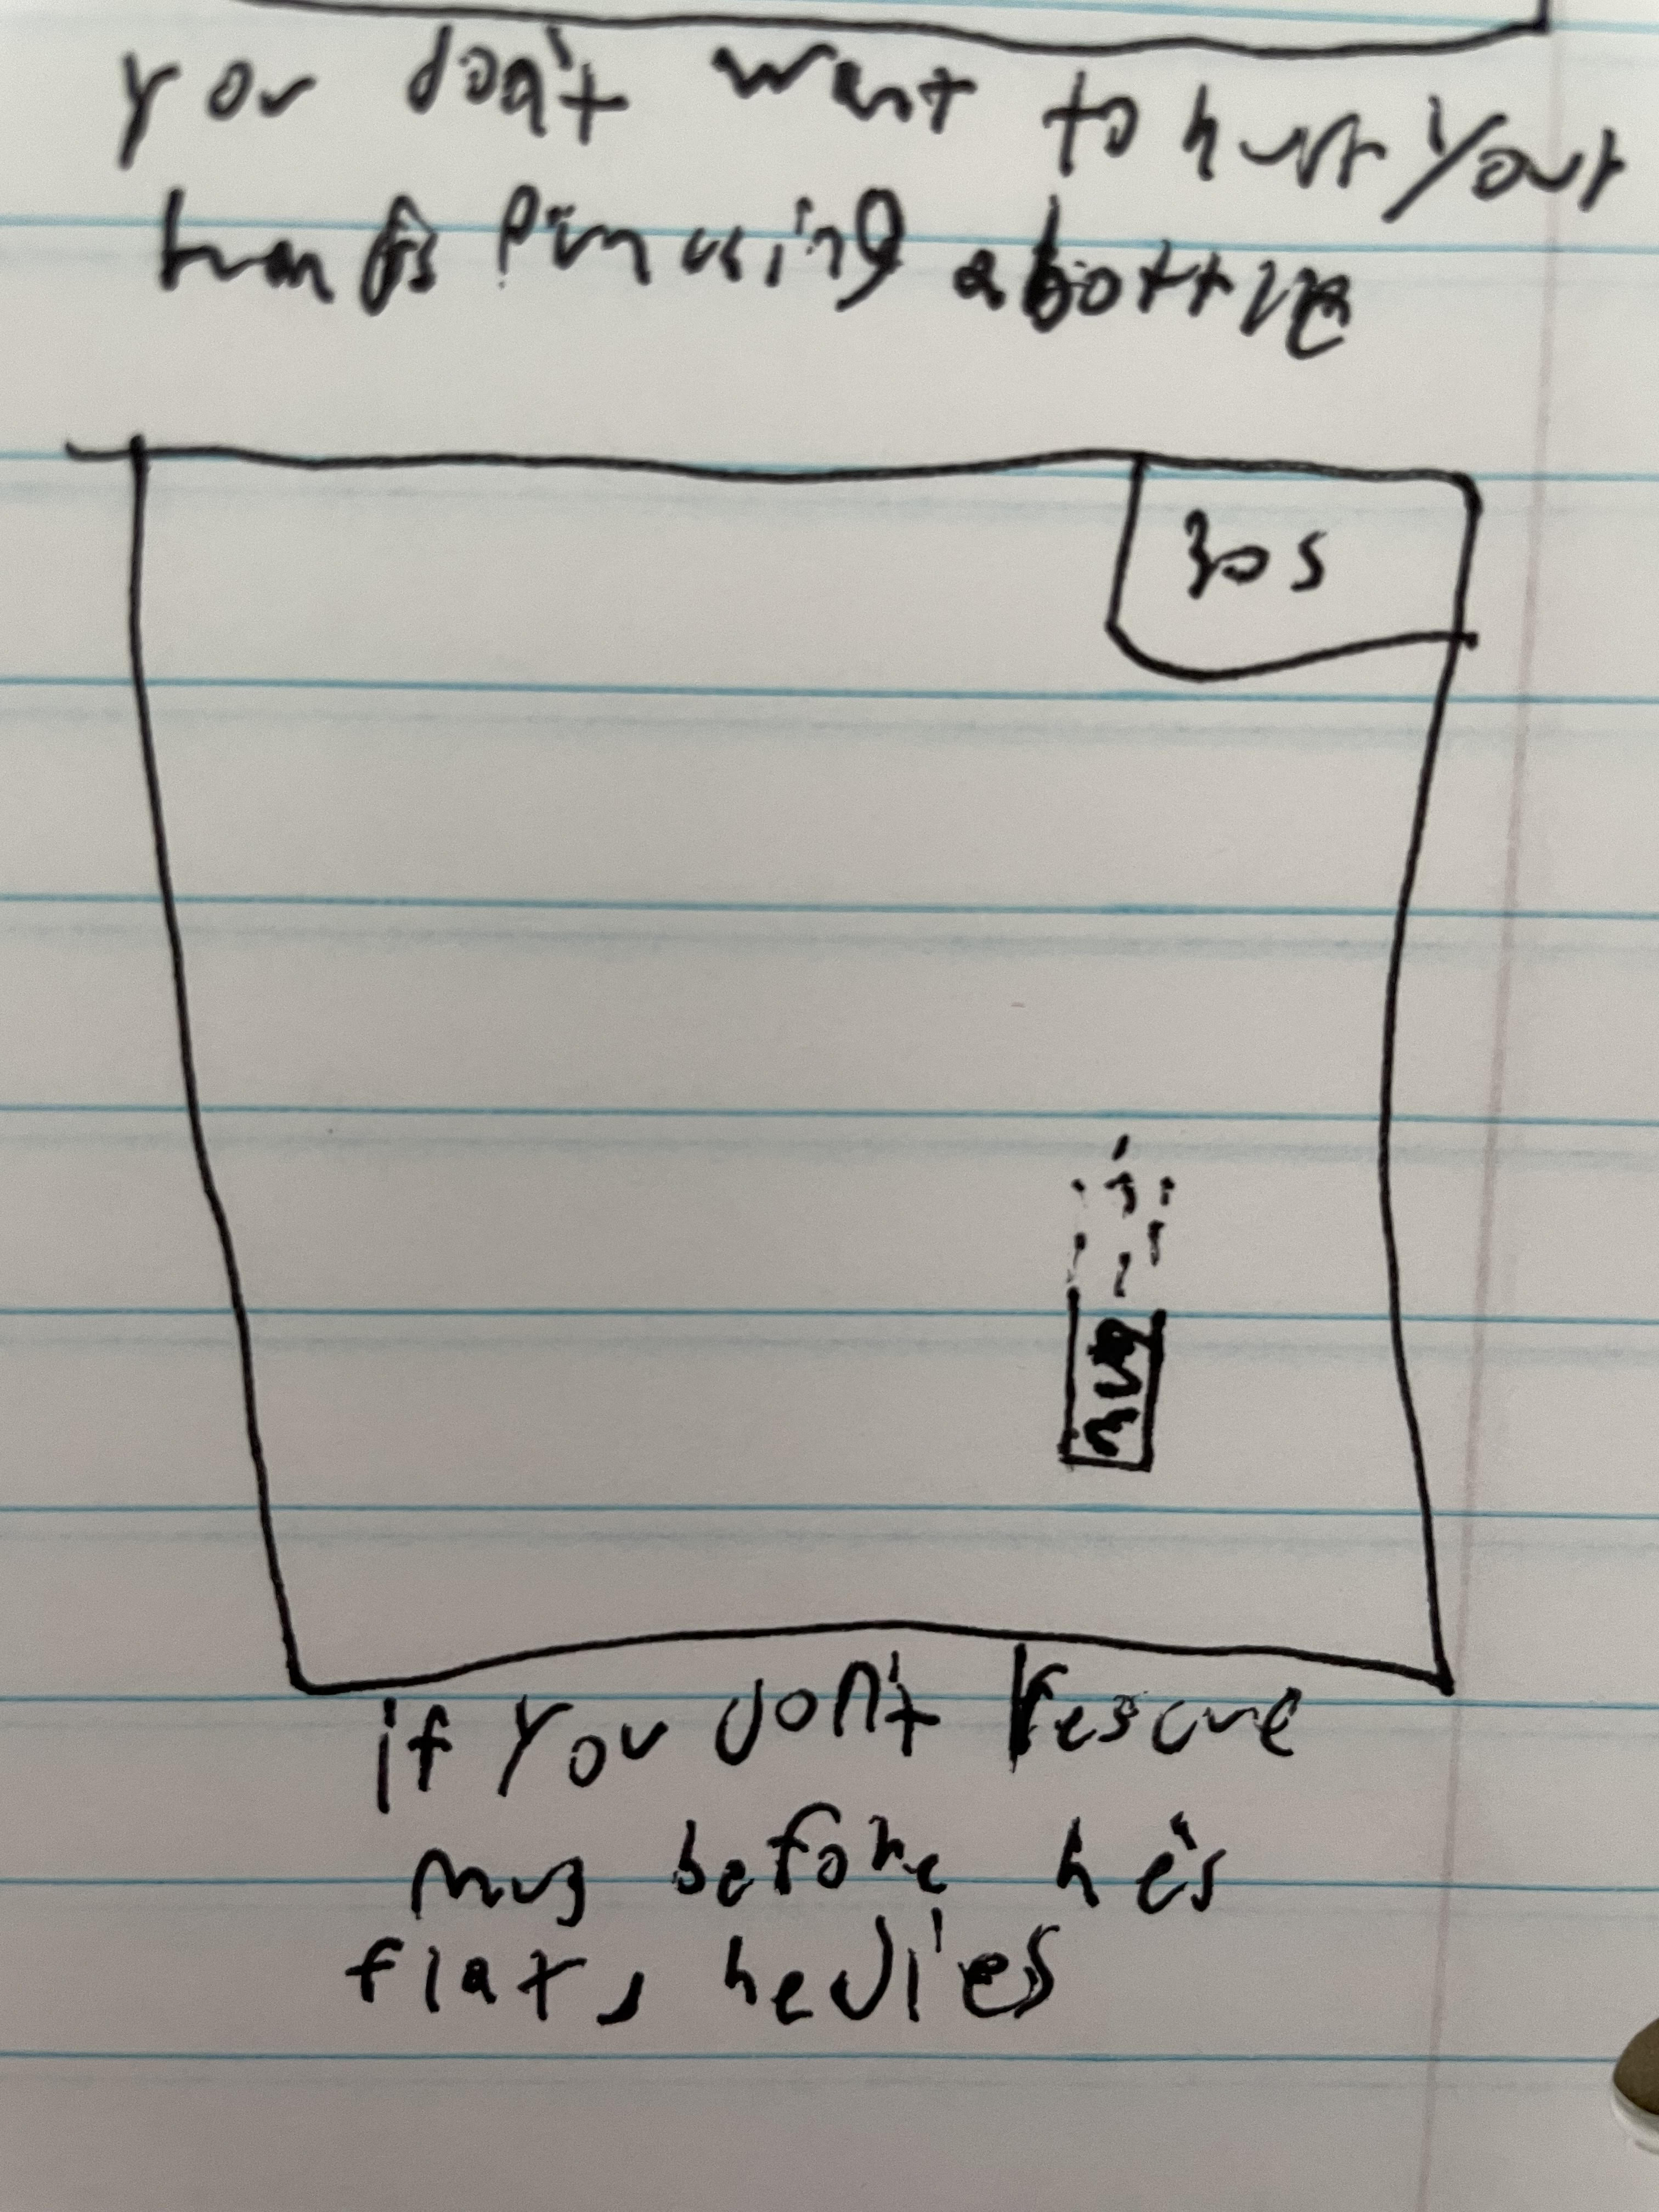 you don't want to hurt your
hands Pin using a bottle
30s
mug
if you don't rescue
mug before he's
flat, he dies